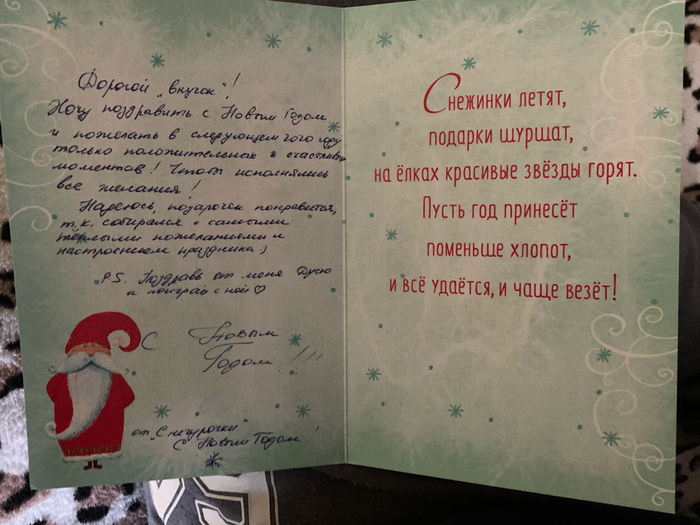 Дорогой „внучок"!
Хочу поздравить с Новым Годом
и пожелать в следующем 2020 году
только положительных и счастливых
моментов! Чтобы исполнялись
все желания!
Надеюсь, подарочек понравится,
т.к. собирался с самыми
тёплыми пожеланиями и
настроением праздника :)
P.S. Поздравь от меня Дусю
и поиграй с ней ♡
С Новым
Годом!!!
от „Снегурочки"
С Новым Годом!
Снежинки летят,
подарки шуршат,
на ёлках красивые звёзды горят.
Пусть год принесёт
поменьше хлопот,
и всё удаётся, и чаще везёт!